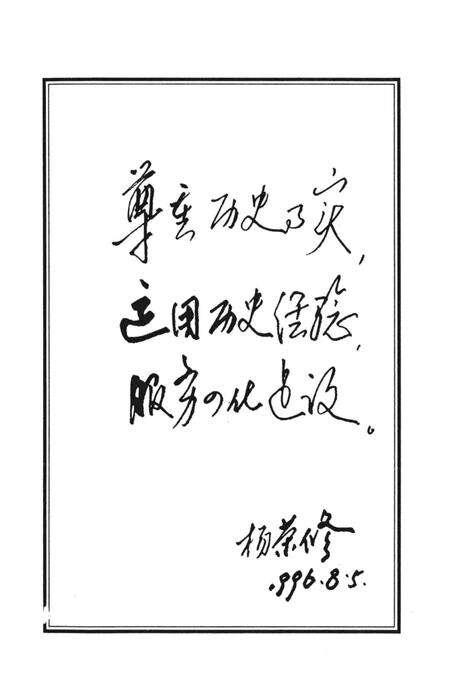 尊重历史事实,
运用历史经验,
服务四化建设。
杨荣修
1996.8.5.